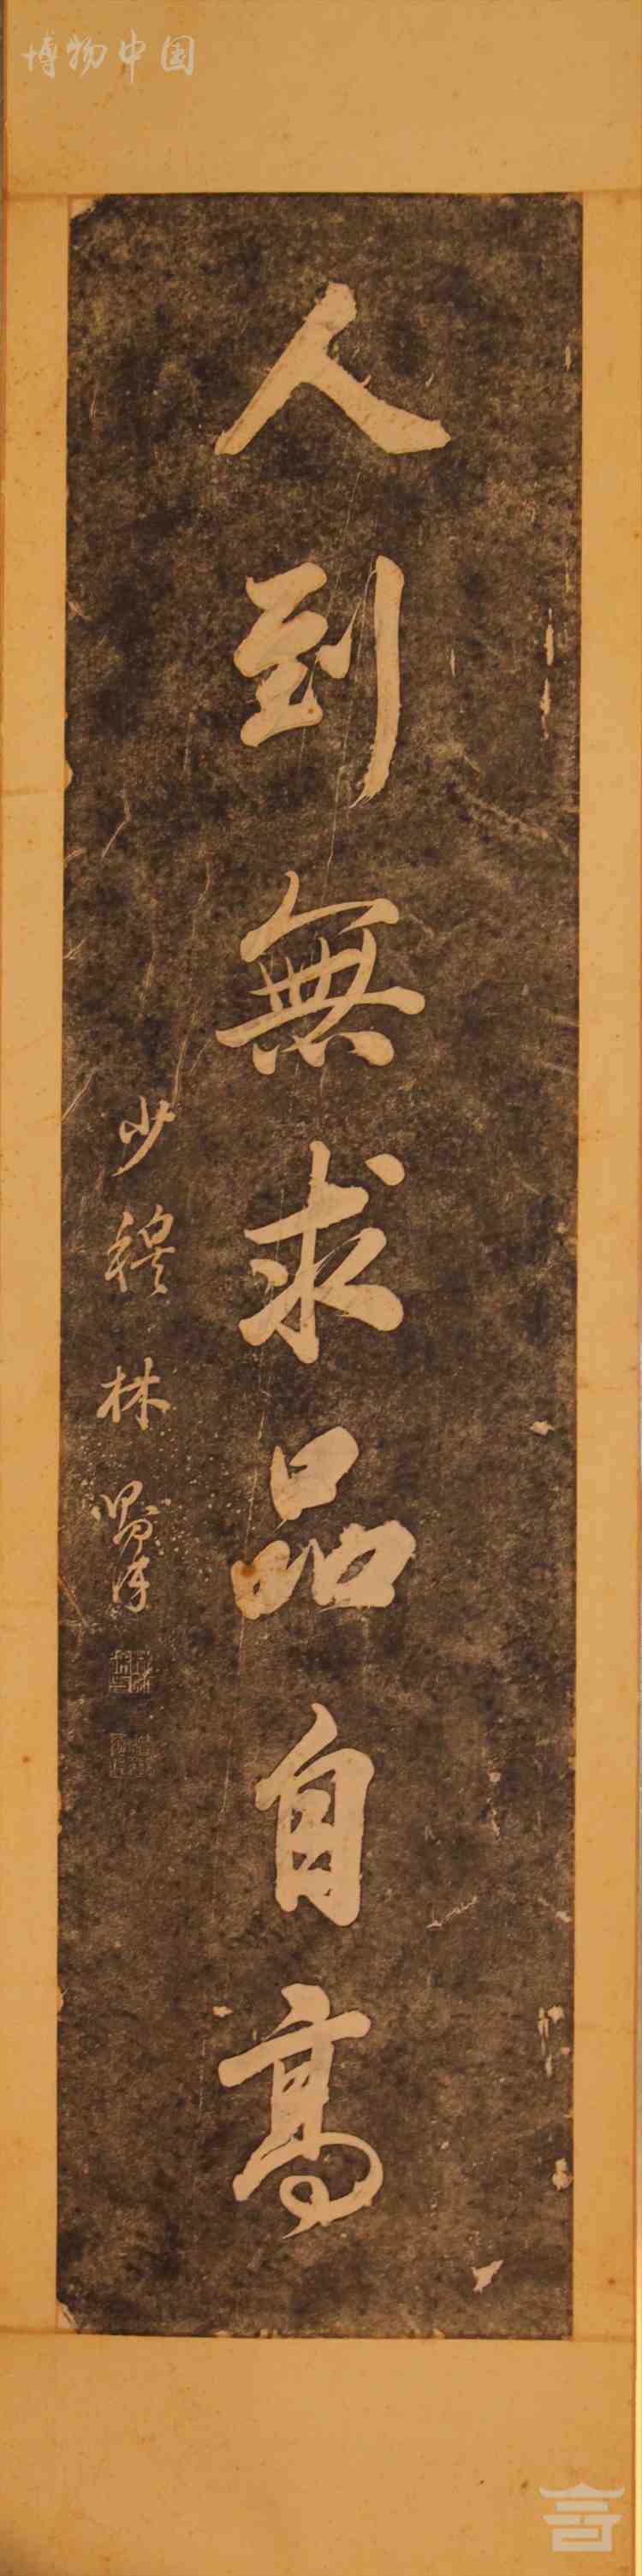 博物中国
人到無求品自高
少穆林則徐